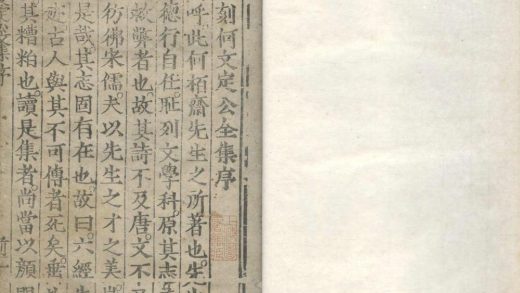 刻何文定公全集序
呼此何栢齋先生之所著也先生
德行自任耻列文學科原其志
故弊者也故其詩不及唐文不
彷彿宋儒夫以先生之才之美
是哉其志固有在也故曰六經
迹古人與其不可傳者死矣
其糟粕也讀是集者尚當以顏
集序
前一